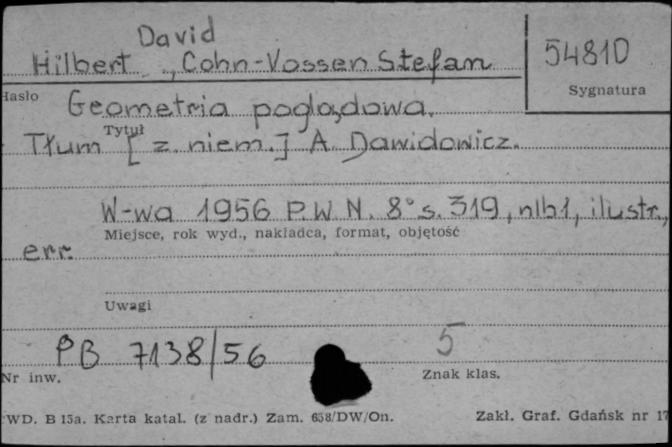 David
Hilbert , Cohn-Vossen Stefan
54810
Sygnatura
Hasło
Geometria poglądowa.
Tytuł
Tłum [z niem.] A. Dawidowicz.
W-wa 1956 P.W.N. 8° s. 319, nlb1, ilustr.,
Miejsce, rok wyd., nakładca, format, objętość
err.
Uwagi
PB 7138/56
5
Nr inw.
Znak klas.
WD. B 15a. Karta katal. (z nadr.) Zam. 658/DW/On.
Zakł. Graf. Gdańsk nr 17